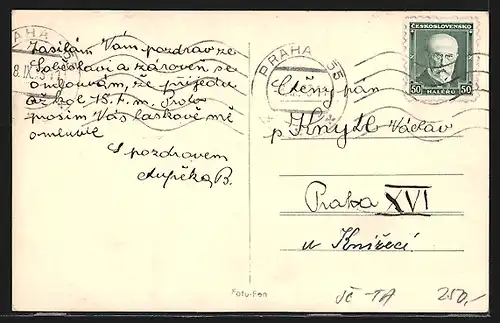 PRAHA 35
8.IX.35
Zasílám Vám pozdrav ze
Soběslavi a zároveň se
omlouvám, že přijedu
až kol 15. t. m. Proto
prosím Vás laskavě mě
omluvte
S pozdravem
B.
PRAHA 35
ČESKOSLOVENSKO
50 HALÉŘŮ 50
Ctěný pán
p. Knytl Václav
Praha XVI
u Knížecí
Foto-Fon
JČ-TA 250,-